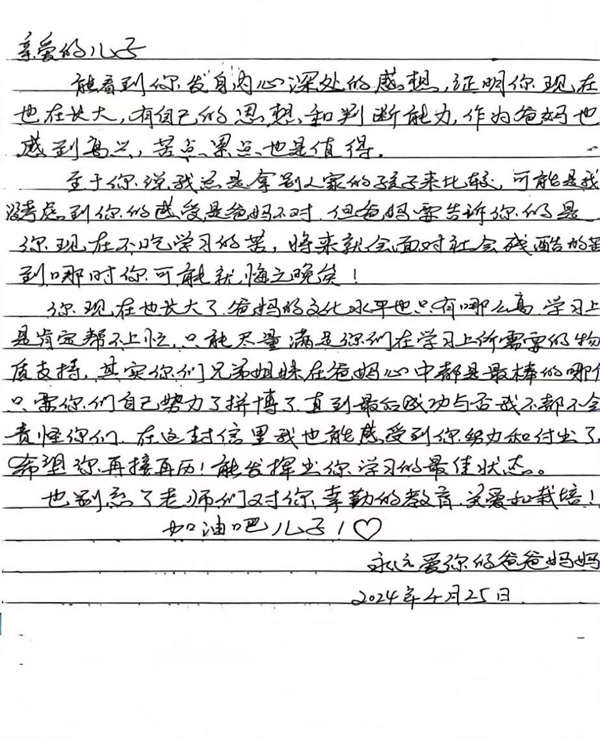 亲爱的儿子
能看到你发自内心深处的感想,证明你现在
也在长大,有自己的思想和判断能力,作为爸妈也
感到高兴,苦点累点也是值得.
至于你说我总是拿别人家的孩子来比较,可能是我
没考虑到你的感受是爸妈不对,但爸妈要告诉你的是
你现在不吃学习的苦,将来就会面对社会残酷的
到哪时你可能就悔之晚矣!
你现在也长大了爸妈的文化水平也只有哪么高,学习上
是肯定帮不上忙,只能尽量满足你们在学习上所需要的物
质支持,其实你们兄弟姐妹在爸妈心中都是最棒的哪
只需你们自己努力了拼博了直到最后成功与否我不都不会
责怪你们.在这封信里我也能感受到你努力和付出了,
希望你再接再历!能发挥出你学习的最佳状态。
也别忘了老师们对你辛勤的教育,关爱和栽培!
加油吧儿子!♡
永远爱你的爸爸妈妈
2024年4月25日.